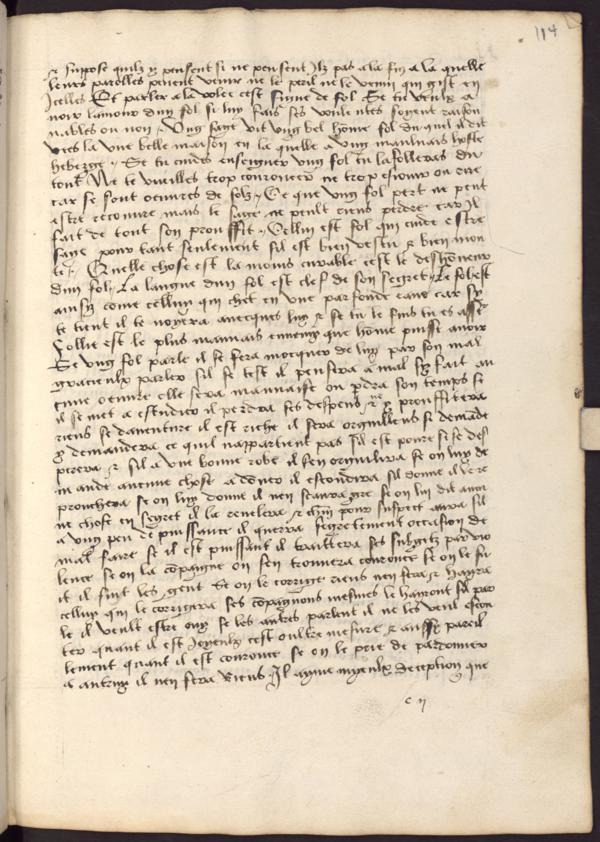 114
et suppose quilz y pensent si ne pensent Ilz pas a la fin a la quelle
leurs parolles peuent venir ne le peril ne le venin qui gist en
Icelles Et parler a la volee cest signe de fol Se tu veulx a
uoir lamour dun fol si luy fais ses voulentes soyent raison
nables ou non / Ung sage vit ung bel homme fol du quel il dit
vees la une belle maison en la quelle a ung mauuais hoste
heberge / Se tu cuides enseigner ung fol tu lafolleras du
tout Ne te vueilles trop couroucer ne trop esiouir ou rire
car se sont oeuures de folz / Ce que ung fol pert ne peut
estre recouure mais le sage ne peult riens perdre car Il
fait de tout son prouffit / Cellui est fol qui cuide estre
sage pour tant seulement sil est bien vestu et bien mon
te / Quelle chose est la moins curable cest le deshonneur
dun fol / La langue dun fol est clef de son segret / Le fol est
ainsy come celluy qui chet en une parfonde eaue car sy
te tient il te noyera auecques luy et se tu le fuis tu es asseur
Follie est le plus mauuais ennemy que home puisse auoir
Se ung fol parle il se fera mocquer de luy par son mal
gracieulx parler sil se test il pensera a mal sy fait au
cune oeuure elle sera mauuaise ou perdra son temps se
il se met a estudier il perdra ses despens et ne y prouffitera
riens se dauenture il est riche il sera orguilleux se demande
y demandera ce quil nappartient pas Sil est poure si se des
perera et sil a une bonne robe il sen orguilira se on luy de
mande aucune chose a donner il escondira sil donne il le re
prouchera se on luy donne il nen scaura gre se on lui dit aucu
ne chose en segret il la reuelera et chun pour suspect aura sil
a ung peu de puissance il querra segretement occasion de
mal faire se il est puissant il traittera ses subgetz par vio
lence se on la compaigne on sen trouuera courouce se on le fu
it il suit les gens Se on le corrige riens nen fera et hayra
celluy qui le corrigera ses compaignons mesmes le hairont sil par
le il veult estre ouy se les autres parlent il ne les veul escou
ter quant il est Joyeulx cest oultre mesure et aussy pareil
lement quant il est courouce se on le prie de pardonner
a autruy il nen fera riens / Il ayme myeulx deception que
c ii